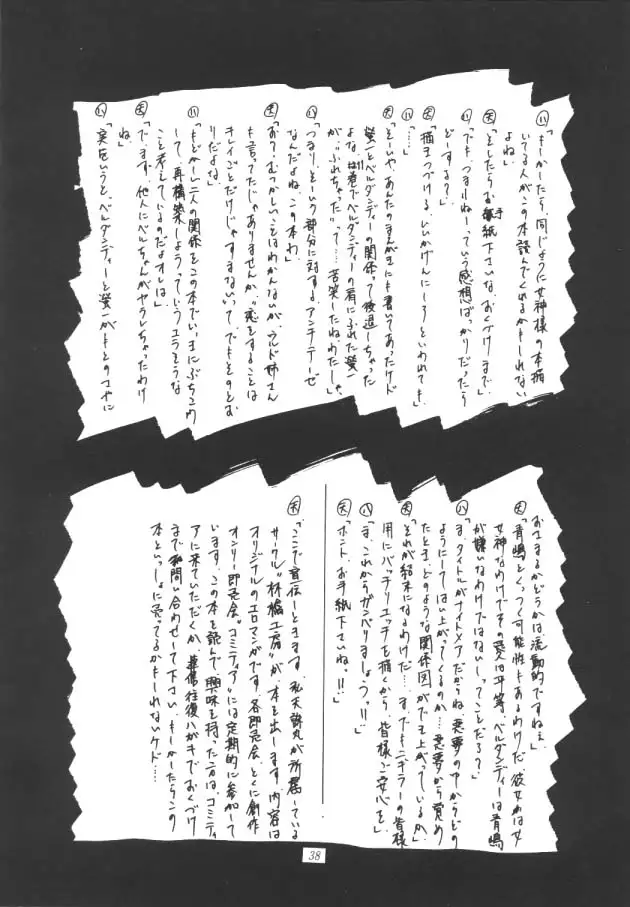 (ハ)「もしかしたら、同じように女神様の本描
いてる人がこの本読んでくれるかもしれない
よね。」
(天)「そしたらお手紙下さいな、おくづけまで」
(ハ)「でも、つまんねーっていう感想ばっかりだったら
どーする?」
(天)「描きつづける、いいかげんにしろといわれても」
(ハ)「…」
(天)「そーいやあんたのまんがにも書いてあったけど
螢一とベルダンディーの関係って後退しちゃった
よな、1巻でベルダンディーの肩にふれた螢一
が、"ふれちゃった"って…苦笑したねわたしゃ」
(ハ)「つまり、そーいう部分に対するアンチテーゼ
なんだよね、この本わ」
(天)「お?、むつかしいことはわかんないが、ウルド姉さん
も言ってたじゃありませんか、"恋をすることは
キレイごとだけじゃすまない"って、でもそのとお
りだよな」
(ハ)「もどかしい二人の関係をこの本でいっきにぶちこわ
して、再構築しようっていうエラそうな
こと考えているのだよオレは」
(天)「でも、まず、他人にベルちゃんがヤラレちゃったわけ
ね」
(ハ)「実をいうと、ベルダンディーと螢一がもとのさやに
おさまるかどうかは流動的ですねぇ」
(天)「青嶋とくっつく可能性もあるわけだ、彼女は女
女神なわけでその愛は平等、ベルダンディーは青嶋
が嫌いなわけではないしってことだろ?」
(ハ)「ま、タイトルがナイトメアだからね、悪夢の中からどの
ようにしてはい上がってくるのか…悪夢から覚め
たとき、どのような関係図ができ上がっているか」
(天)「それが結末になるわけだ…、すでにキニチラーの皆様
用にバッチリエッチを描くから、皆様ご安心を」
(ハ)「ま、これからガンバりましょうっ!!」
(天)「ホント、お手紙下さいね。!!」
(天)「ここで宣伝しときます、私天誅丸が所属している
サークル"林檎工房"が本を出します、内容は
オリジナルのエロマンガです、各即売会、とくに創作
オンリー即売会"コミティア"には定期的に参加して
います、この本を読んで興味を持った方は、コミティ
アに来ていただくか、葉書往復ハガキでおくづけ
まで御問い合わせして下さい、もしかしたらこの
本といっしょに売ってるかもしれないケド…
38